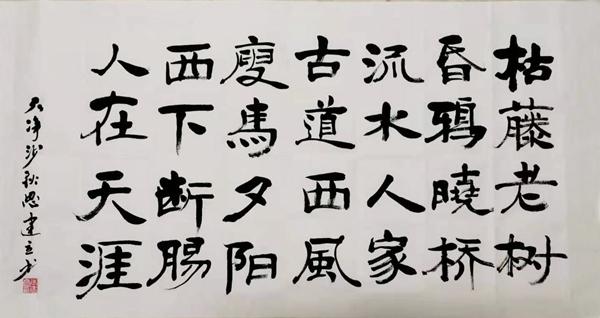 枯藤老树
昏鴉曉桥
流水人家
古道西風
廋馬夕阳
西下断腸
人在天涯
天净沙秋思建立书